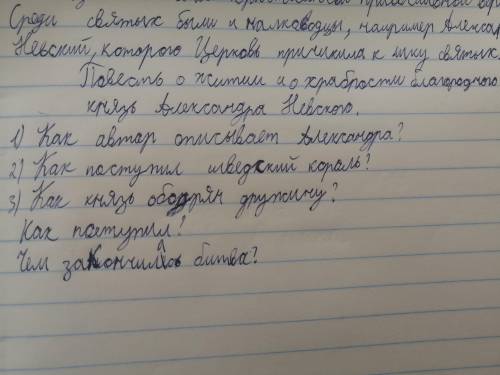 Среди святых были и полководцы, например Алексан
Невский, которого Церковь причислила к лику святых.
Повесть о житии и о храбрости благородного
князя Александра Невского.
1) Как автор описывает Александра?
2) Как поступил шведский король?
3) Как князь ободрял дружину?
Как поступил?
Чем закончилась битва?